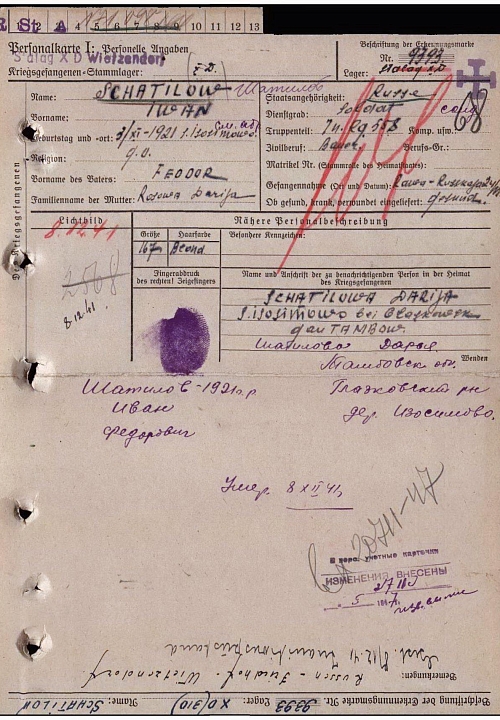 1 2 3 4 5 6 7 8 9 10 11 12 13
R St A
Personalkarte I: Personelle Angaben
Stalag X D Wietzendorf
Kriegsgefangenen-Stammlager: X D.
Beschriftung der Erkennungsmarke
Nr. 9393
Lager: Stalag X D
68
Des Kriegsgefangenen
Name: SCHATILOW Шатилов
Vorname: IWAN
Geburtstag und -ort: 3/XI-1921 s.Isosimowo
Religion: g.o.
Vorname des Vaters: FEODOR
Familienname der Mutter: Rosowa Darija
Staatsangehörigkeit: Russe
Dienstgrad: Soldat солд
Truppenteil: In. Rg 578 Komp. usw.
Zivilberuf: Bauer Berufs-Gr.:
Matrikel Nr. (Stammrolle des Heimatstaates):
Gefangennahme (Ort und Datum):
Ob gesund, krank, verwundet eingeliefert: gesund
Lichtbild
8.12.41
2568
8.12.41
Nähere Personalbeschreibung
Größe Haarfarbe Besondere Kennzeichen:
167 Blond
Fingerabdruck
des rechten! Zeigefingers
Name und Anschrift der zu benachrichtigenden Person in der Heimat
des Kriegsgefangenen
SCHATILOWA DARIJA
s.Isosimowo bei
gau TAMBOW
Wenden
Шатилова Дарья
Тамбовск обл.
Глазковский рн
дер. Изосимово.
Шатилов-1921г.р
Иван
Федорович
Умер. 8 XII 41
20711-47
В перс. учетные карточки
ИЗМЕНЕНИЯ ВНЕСЕНЫ
5
Bemerkungen: Russen-Friedhof-Wietzendorf.
8/12.41
Beschriftung der Erkennungsmarke Nr. 9393 Lager: X D (310) Name: SCHATILOW